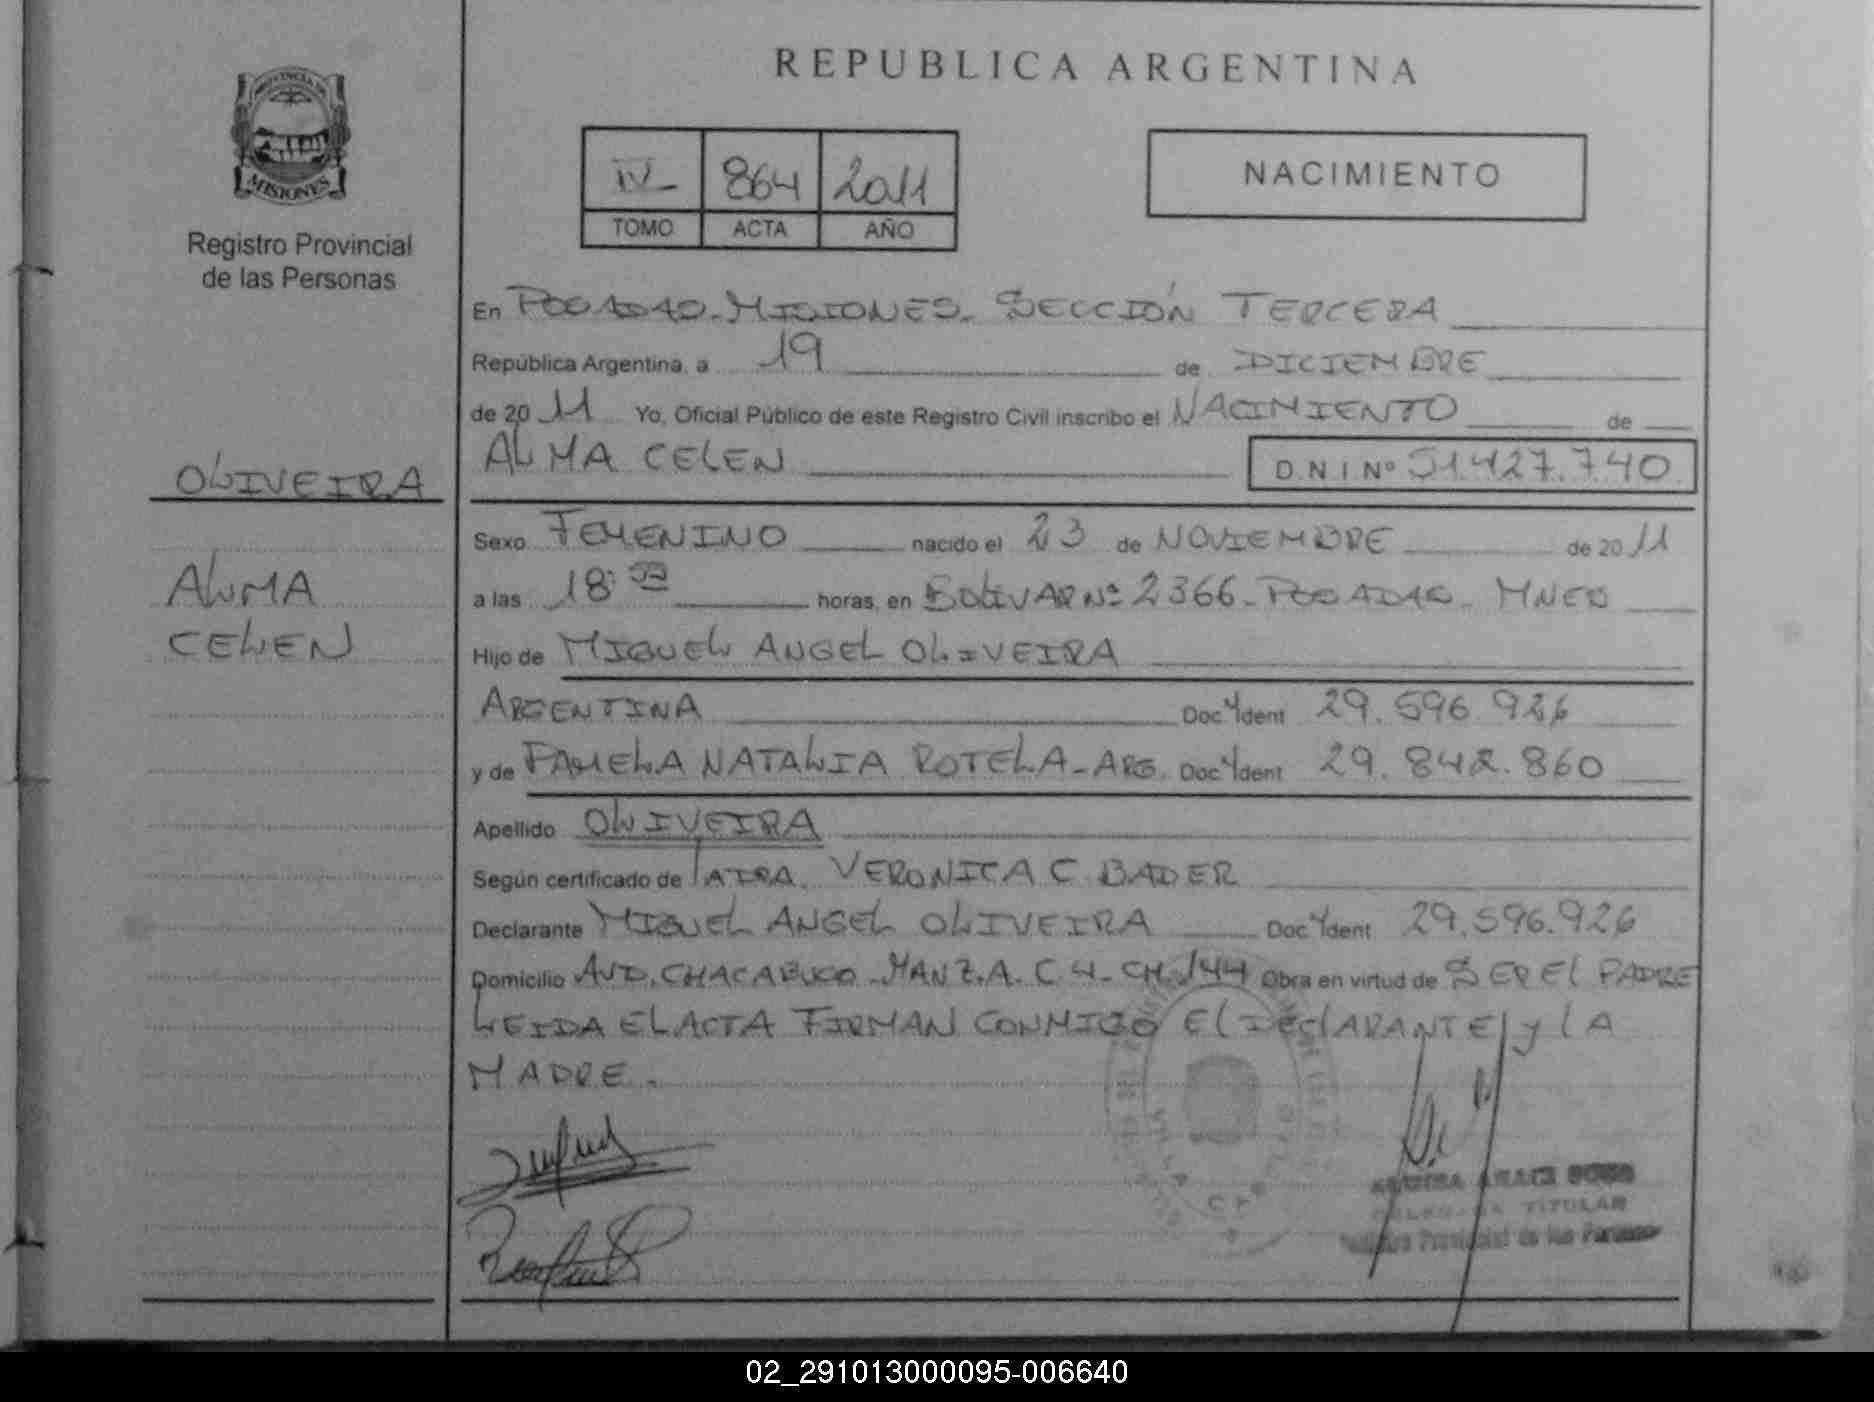 PROVINCIA DE
MISIONES
Registro Provincial
de las Personas
OLIVEIRA
ALMA
CELEN
REPUBLICA ARGENTINA
IV 864 2011
TOMO ACTA AÑO
NACIMIENTO
En POSADAS-MISIONES- SECCIÓN TERCERA
República Argentina, a 19 de DICIEMBRE
de 2011 Yo, Oficial Público de este Registro Civil inscribo el NACIMIENTO de
ALMA CELEN D.N.I Nº 51.427.740
Sexo FEMENINO nacido el 23 de NOVIEMBRE de 2011
a las 18: horas, en BOLIVAR Nº 2366- POSADAS- MNES
Hijo de MIGUEL ANGEL OLIVEIRA
ARGENTINA Doc. Ident 29.596.926
y de PAMELA NATALIA ROTELA-ARG. Doc. Ident 29.842.860
Apellido OLIVEIRA
Según certificado de VERONICA C BADER
Declarante MIGUEL ANGEL OLIVEIRA Doc. Ident 29.596.926
Domicilio AVD. CHACABUCO-MANZ.A. C.4- CH.144 Obra en virtud de SER El PADRE
LEIDA EL ACTA FIRMAN CONMIGO El DEClARANTE y lA
MADRE.
TITULAR
Registro Provincial de las Personas
02_291013000095-006640